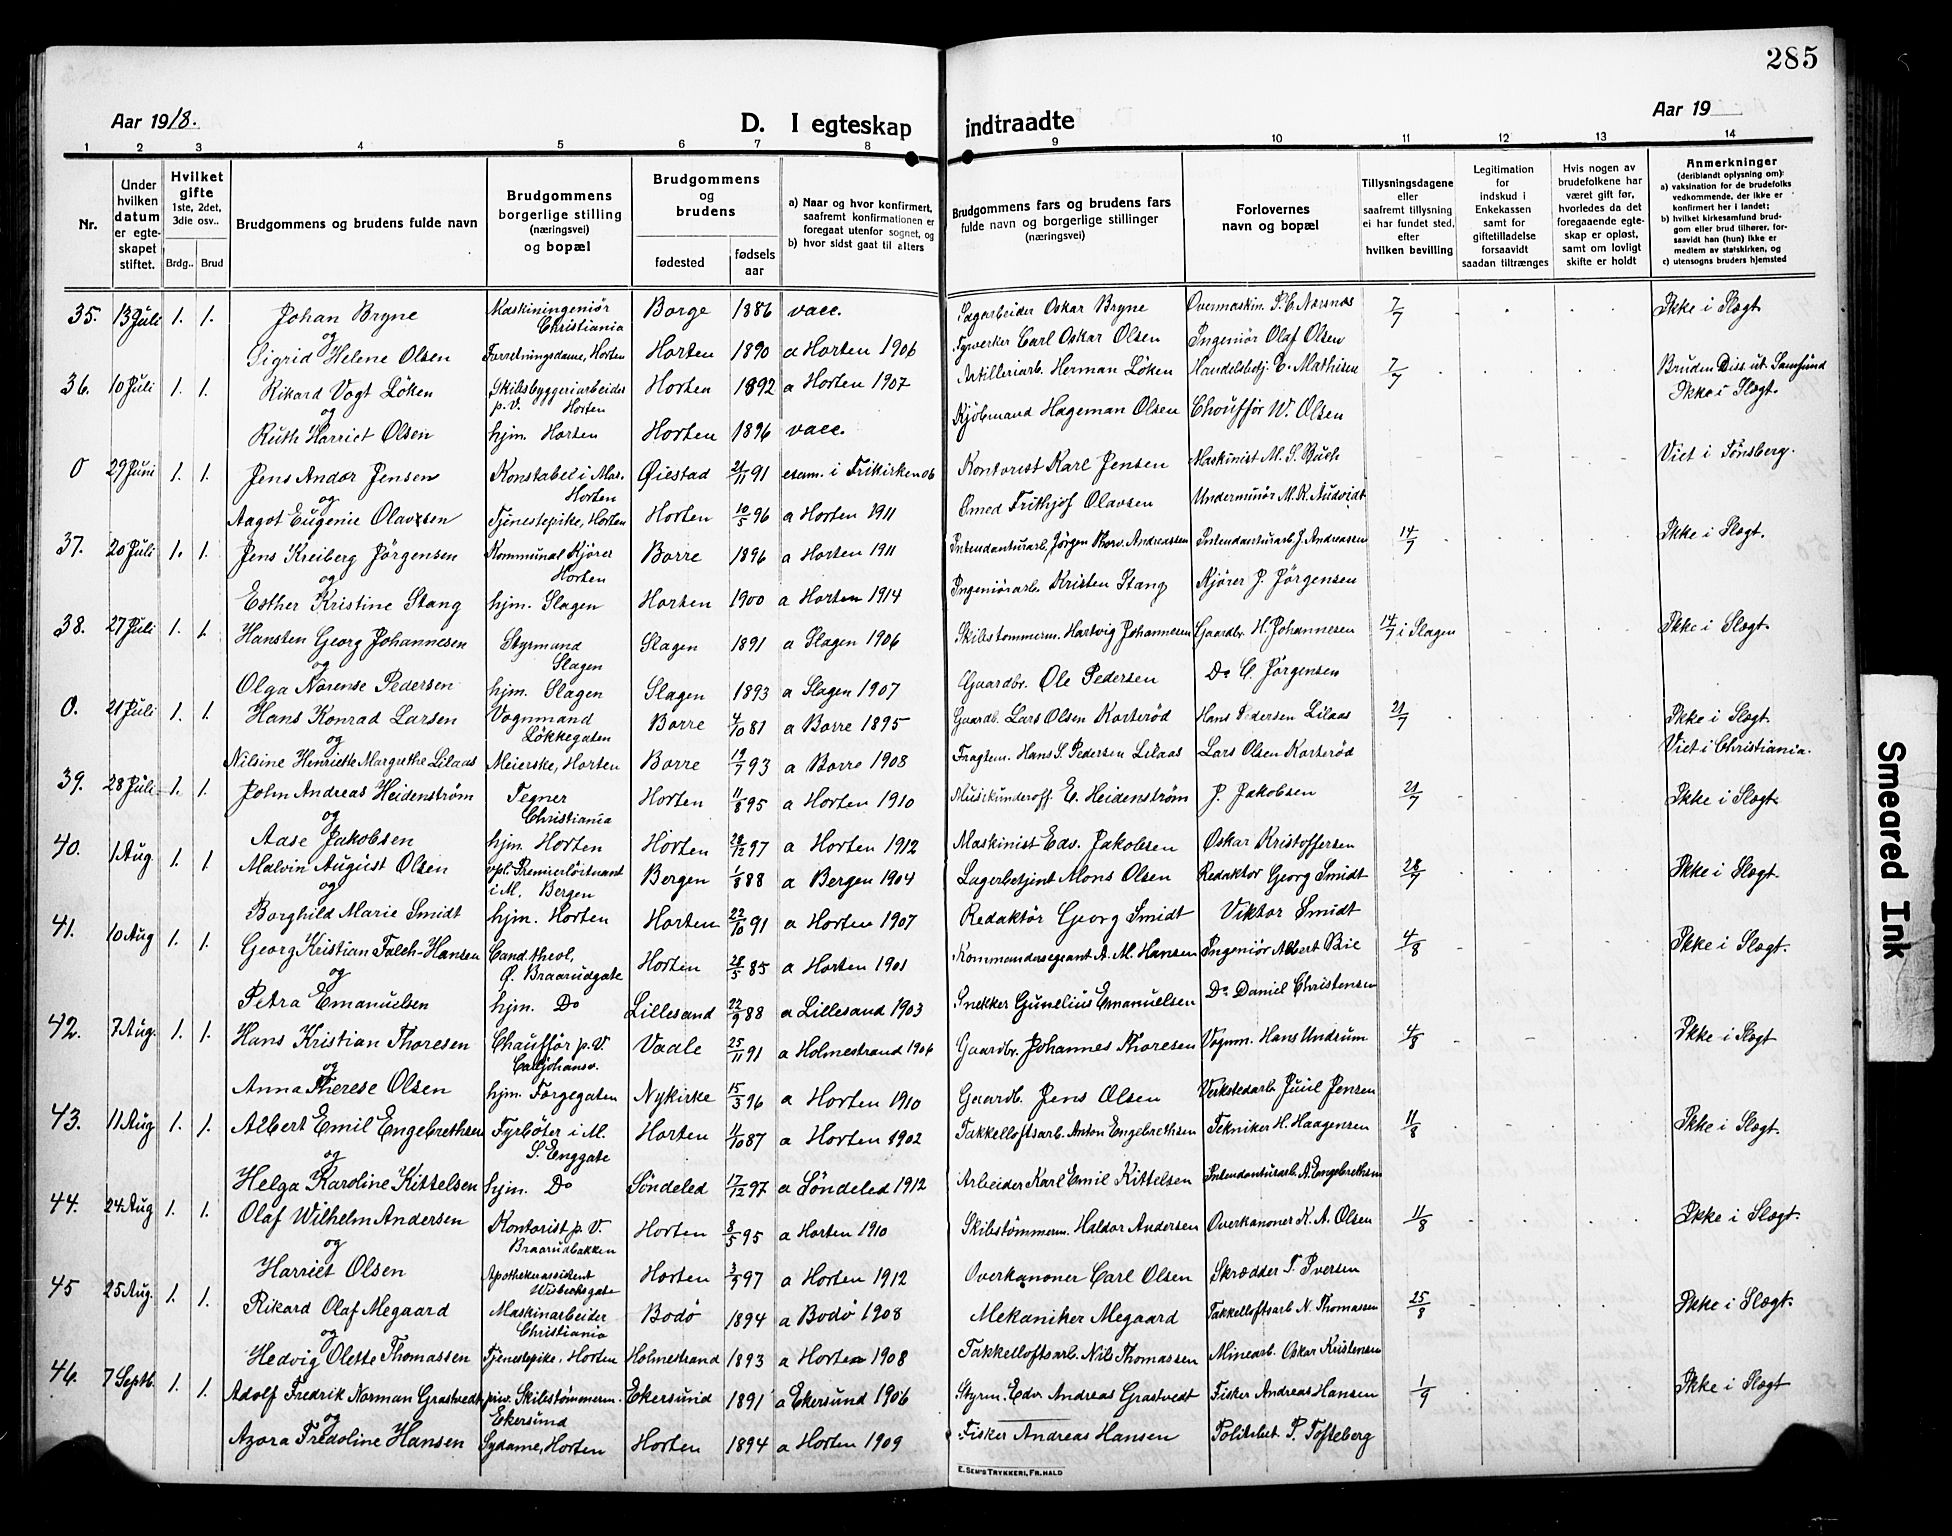 285
Aar 1918.
D. I egteskap indtraadte
Aar 19
1 2 3 4 5 6 7 8 9 10 11 12 13 14
Nr.
Under hvilken datum er egteskapet stiftet.
Hvilket gifte 1ste, 2det, 3die osv..
Brdg.. Brud
Brudgommens og brudens fulde navn
Brudgommens borgerlige stilling (næringsvei) og bopæl
Brudgommens og brudens
fødested
fødsels aar
a) Naar og hvor konfirmert, saafremt konfirmationen er foregaat utenfor sognet, og
b) hvor sidst gaat til alters
Brudgommens fars og brudens fars fulde navn og borgerlige stillinger (næringsvei)
Forlovernes navn og bopæl
Tillysningsdagene eller saafremt tillysning ei har fundet sted, efter hvilken bevilling
Legitimation for indskud i Enkekassen samt for giftetilladelse forsaavidt saadan tiltrænges
Hvis nogen av brudefolkene har været gift før, hvorledes da det foregaaende egteskap er opløst, samt om lovligt skifte er holdt
Anmerkninger (deriblandt oplysning om):
a) vaksination for de brudefolks vedkommende, der ikke er konfirmert her i landet;
b) hvilket kirkesamfund brudgom eller brud tilhører, forsaavidt han (hun) ikke er medlem av statskirken, og
c) utensogns bruders hjemsted
35. 13 Juli 1. 1. Johan Bryne Maskiningeniør Christiania Borge 1886 vacc. Lagerarbeider Oskar Bryne Overmaskin. P. C. Narsnes 7/7 Ikke i Slegt.
og
Sigrid Helene Olsen Forretningsdame, Horten Horten 1890 a Horten 1906 Fyrverker Carl Oskar Olsen Ingeniør Olaf Olsen
36. 10 Juli 1. 1. Rikard Vogt Löken Skibsbyggeriarbeider p.V. Horten Horten 1892 a Horten 1907 Artilleriarb. Herman Löken Handelsbetj. C. Mathisen 7/7 Bruden Diss. ut. Samfund Ikke i Slegt.
og
Ruth Harriet Olsen hjm. Horten Horten 1896 vacc. Kjöbmand Hageman Olsen Chouffør W. Olsen
0 29 Juni 1. 1. Jens Andor Jensen Konstabel i Mar. Horten Øiestad 21/11 91 exam. i Frikirken 06 Kontorist Karl Jensen Maskinist M. S. Buch Viet i Tönsberg.
og
Aagot Eugenie Olavsen Tjenestepike, Horten Horten 10/5 96 a Horten 1911 Smed Frithjof Olavsen Underminör M. K. Audvidt
37. 20 Juli 1. 1. Jens Kreiberg Jörgensen Kommunal Kjörer Horten Borre 1896 a Horten 1911 Intendanturarb. Jörgen Thorv. Andreassen Intendanturarb. J. Andreassen 14/7 Ikke i Slegt.
og
Esther Kristine Stang hjm. Slagen Horten 1900 a Horten 1914 Ingeniörarb. Kristen Stang Kjörer J. Jörgensen
38. 27 Juli 1. 1. Hansten Georg Johannesen Styrmand Slagen Slagen 1891 a Slagen 1906 Skibstömmerm. Hartvig Johannesen Gaardbr. H. Johannesen 14/7 i Slagen Ikke i Slegt.
og
Olga Norense Pedersen hjm. Slagen Slagen 1893 a Slagen 1907 Gaardbr. Ole Pedersen Do C. Jörgensen
0. 21 Juli 1. 1. Hans Konrad Larsen Vognmand Løkkegaten Borre 4/10 81 a Borre 1895 Gaardb. Lars Olsen Korteröd Hans Pedersen Lilaas 21/7 Ikke i Slegt. Viet i Christiania.
og
Nilsine Henriette Margrethe Lilaas Meierske, Horten Borre 19/7 93 a Borre 1908 Fragtem. Hans S. Pedersen Lilaas Lars Olsen Korteröd
39. 28 Juli 1. 1. John Andreas Heidenström Tegner Christiania Horten 11/8 95 a Horten 1910 Musikunderoff. E. Heidenström J. Jakobsen 21/7 Ikke i Slegt.
og
Aase Jakobsen hjm. Horten Horten 28/12 97 a Horten 1912 Maskinist Edv. Jakobsen Oskar Kristoffersen
40. 1 Aug 1. 1 Malvin August Olsen vpl. Premierlöitnant i M. Bergen Bergen 1/8 88 a Bergen 1904 Lagerbetjent Mons Olsen Redaktør Georg Smidt 28/7 Ikke i Slegt.
og
Borghild Marie Smidt hjm. Horten Horten 22/10 91 a Horten 1907 Redaktör Georg Smidt Viktor Smidt
41. 10 Aug 1. 1. Georg Kristian Falch-Hansen Cand. theol. Ø. Braarudgate Horten 28/5 85 a Horten 1901 Kommandersergeant A. M. Hansen Ingeniør Albert Bie 4/8 Ikke i Slegt.
og
Petra Emanuelsen hjm. Do Lillesand 22/9 88 a Lillesand 1903 Snekker Gunelius Emanuelsen Do Daniel Christensen
42. 7 Aug. 1. 1. Hans Kristian Thoresen Chaufför p.V. Carljohansv. Vaale 25/11 91 a Holmestrand 1906 Gaardbr. Johannes Thoresen Vognm. Hans Undrum 4/8 Ikke i Slegt
og
Anna Therese Olsen hjm. Torgegaten Nykirke 15/3 96 a Horten 1910 Gaardb. Jens Olsen Verkstedarb. Juul Jensen
43. 11 Aug 1. 1. Albert Emil Engebrethsen Fyrböter i M. S. Enggate Horten 11/10 87 a Horten 1902 Takkelloftsarb. Anton Engebrethsen Tekniker H. Haagensen 11/8 Ikke i Slegt.
og
Helga Karoline Kittelsen hjm. Do Söndeled 17/12 97 a Söndeled 1912 Arbeider Karl Emil Kittelsen Intendanturarb. A. Engebrethsen
44. 24 Aug 1. 1. Olaf Wilhelm Andersen Kontorist p.V. Braarudbakken Horten 8/5 95 a Horten 1910 Skibstömmerm. Haldor Andersen Overkanoner K. A. Olsen 11/8 Ikke i Slegt.
og
Harriet Olsen Apothekerassistent Wisbechsgate Horten 3/9 97 a Horten 1912 Overkanoner Carl Olsen Skrædder T. Iversen
45 25 Aug. 1. 1. Rikard Olaf Megaard Maskinarbeider Christiania Bodö 1894 a Bodö 1908 Mekaniker Megaard Takkelloftsarb N. Thomassen 25/8 Ikke i Slegt.
og
Hedvig Olette Thomassen Tjenestepike, Horten Holmestrand 1893 a Horten 1908 Takkelloftsarb. Nils Thomassen Minearb. Oskar Kristensen
46. 7 Septb. 1. 1. Adolf Fredrik Norman Grastvedt priv. Skibstömmerm. Ekersund Ekersund 1891 a Ekersund 1906 Styrm. Edv. Andreas Grastvedt Fisker Andreas Hansen 1/9 Ikke i Slegt
og
Azora Fredoline Hansen Sydame, Horten Horten 1894 a Horten 1909 Fisker Andreas Hansen Politibet. P. Tofteberg
E. SEM'S TRYKKERI, FR.HALD
Smeared Ink